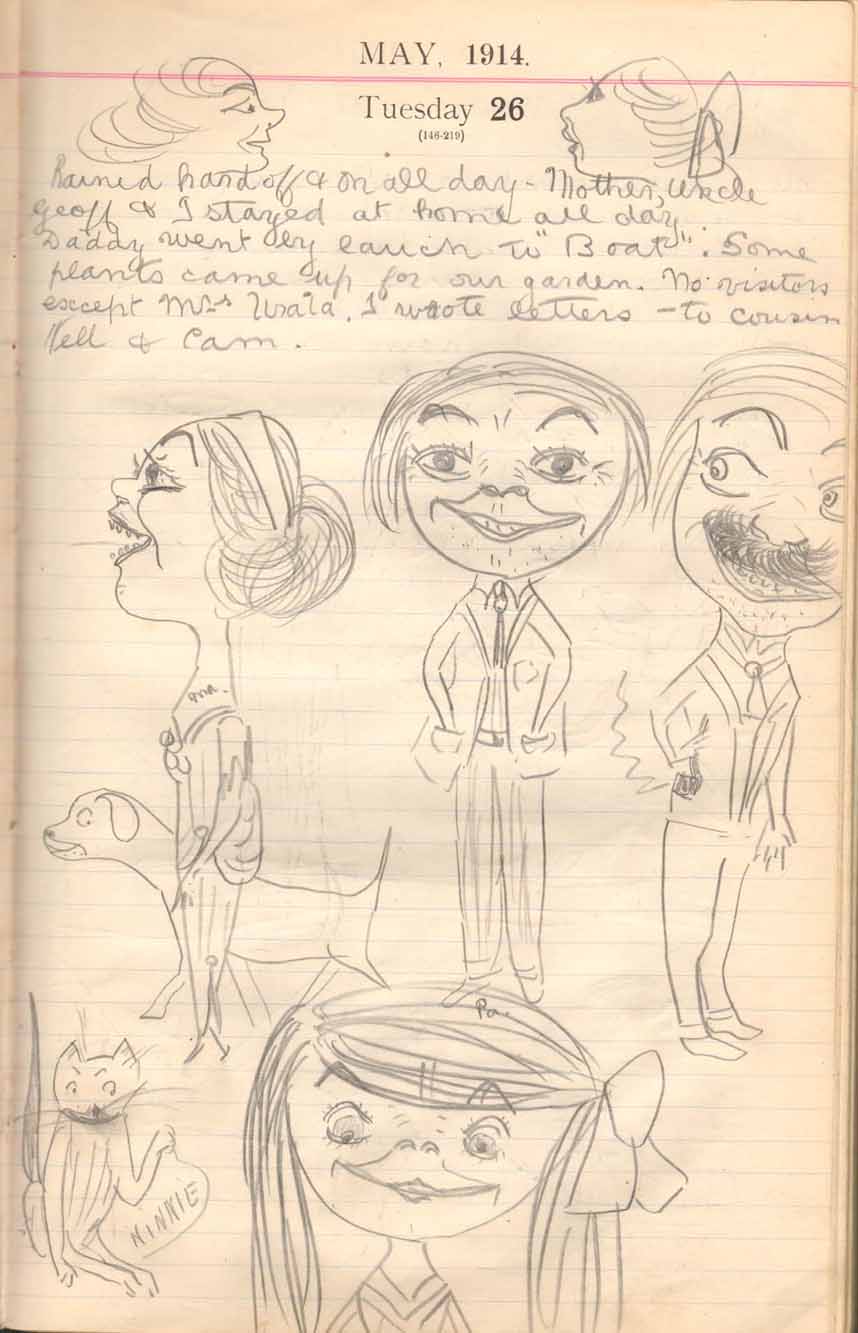 MAY, 1914.
Tuesday 26
(146-219)
Rained hard off & on all day - Mother, Uncle
Geoff & I stayed at home all day.
Daddy went by launch to "Boat". Some
plants came up for our garden. No visitors
except Mrs I wrote letters - to cousin
Nell & Cam.
Ma.
Pa.
NINKIE